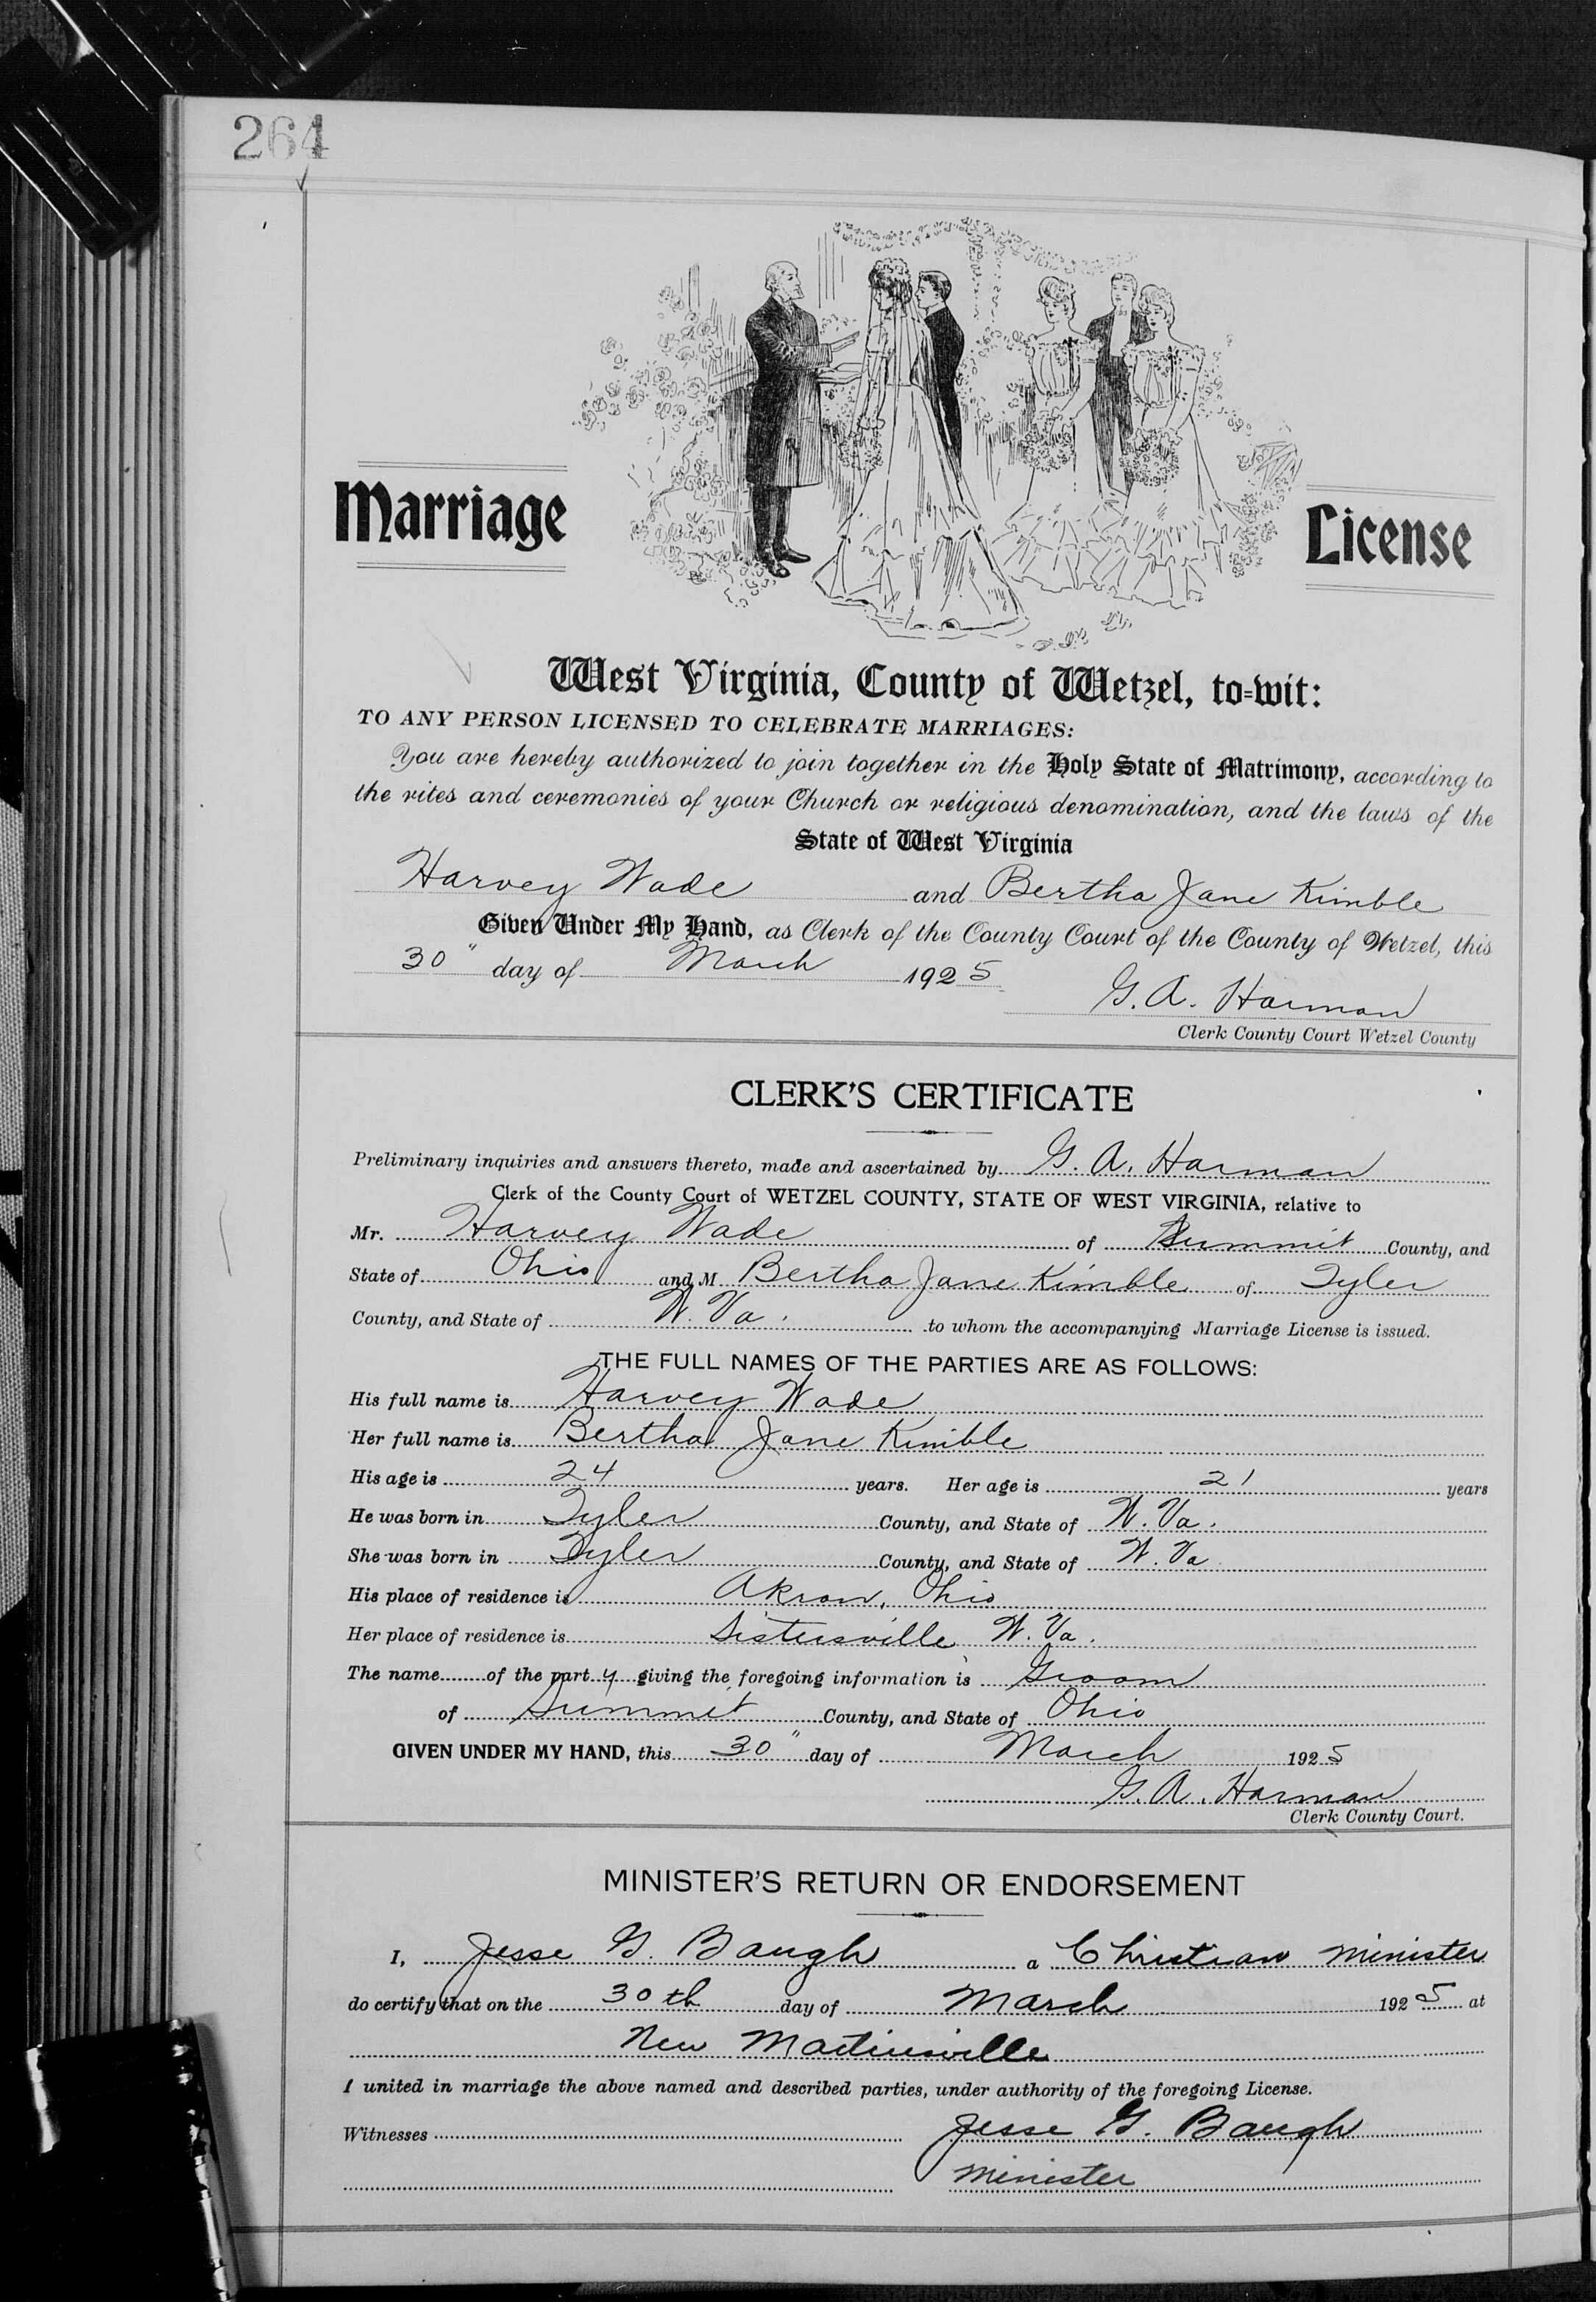 264
Marriage License
West Virginia, County of Wetzel, to-wit:
TO ANY PERSON LICENSED TO CELEBRATE MARRIAGES:
You are hereby authorized to join together in the Holy State of Matrimony, according to
the rites and ceremonies of your Church or religious denomination, and the laws of the
State of West Virginia
Harvey Wade and Bertha Jane Kimble
Given Under My Hand, as Clerk of the County Court of the County of Wetzel, this
30" day of March 1925
G. A. Harman
Clerk County Court Wetzel County
CLERK'S CERTIFICATE
Preliminary inquiries and answers thereto, made and ascertained by G. A. Harman
Clerk of the County Court of WETZEL COUNTY, STATE OF WEST VIRGINIA, relative to
Mr. Harvey Wade of Summit County, and
State of Ohio and M Bertha Jane Kimble of Tyler
County, and State of W. Va. to whom the accompanying Marriage License is issued.
THE FULL NAMES OF THE PARTIES ARE AS FOLLOWS:
His full name is Harvey Wade
Her full name is Bertha Jane Kimble
His age is 24 years. Her age is 21 years
He was born in Tyler County, and State of W. Va.
She was born in Tyler County, and State of W. Va
His place of residence is Akron, Ohio
Her place of residence is Sistersville W. Va.
The name of the party giving the foregoing information is Groom
of Summit County, and State of Ohio
GIVEN UNDER MY HAND, this 30" day of March 1925
G. A. Harman
Clerk County Court.
MINISTER'S RETURN OR ENDORSEMENT
I, Jesse G. Baugh a Christian minister
do certify that on the 30th day of March 1925 at
New Martinsville
I united in marriage the above named and described parties, under authority of the foregoing License.
Witnesses Jesse G. Baugh
minister